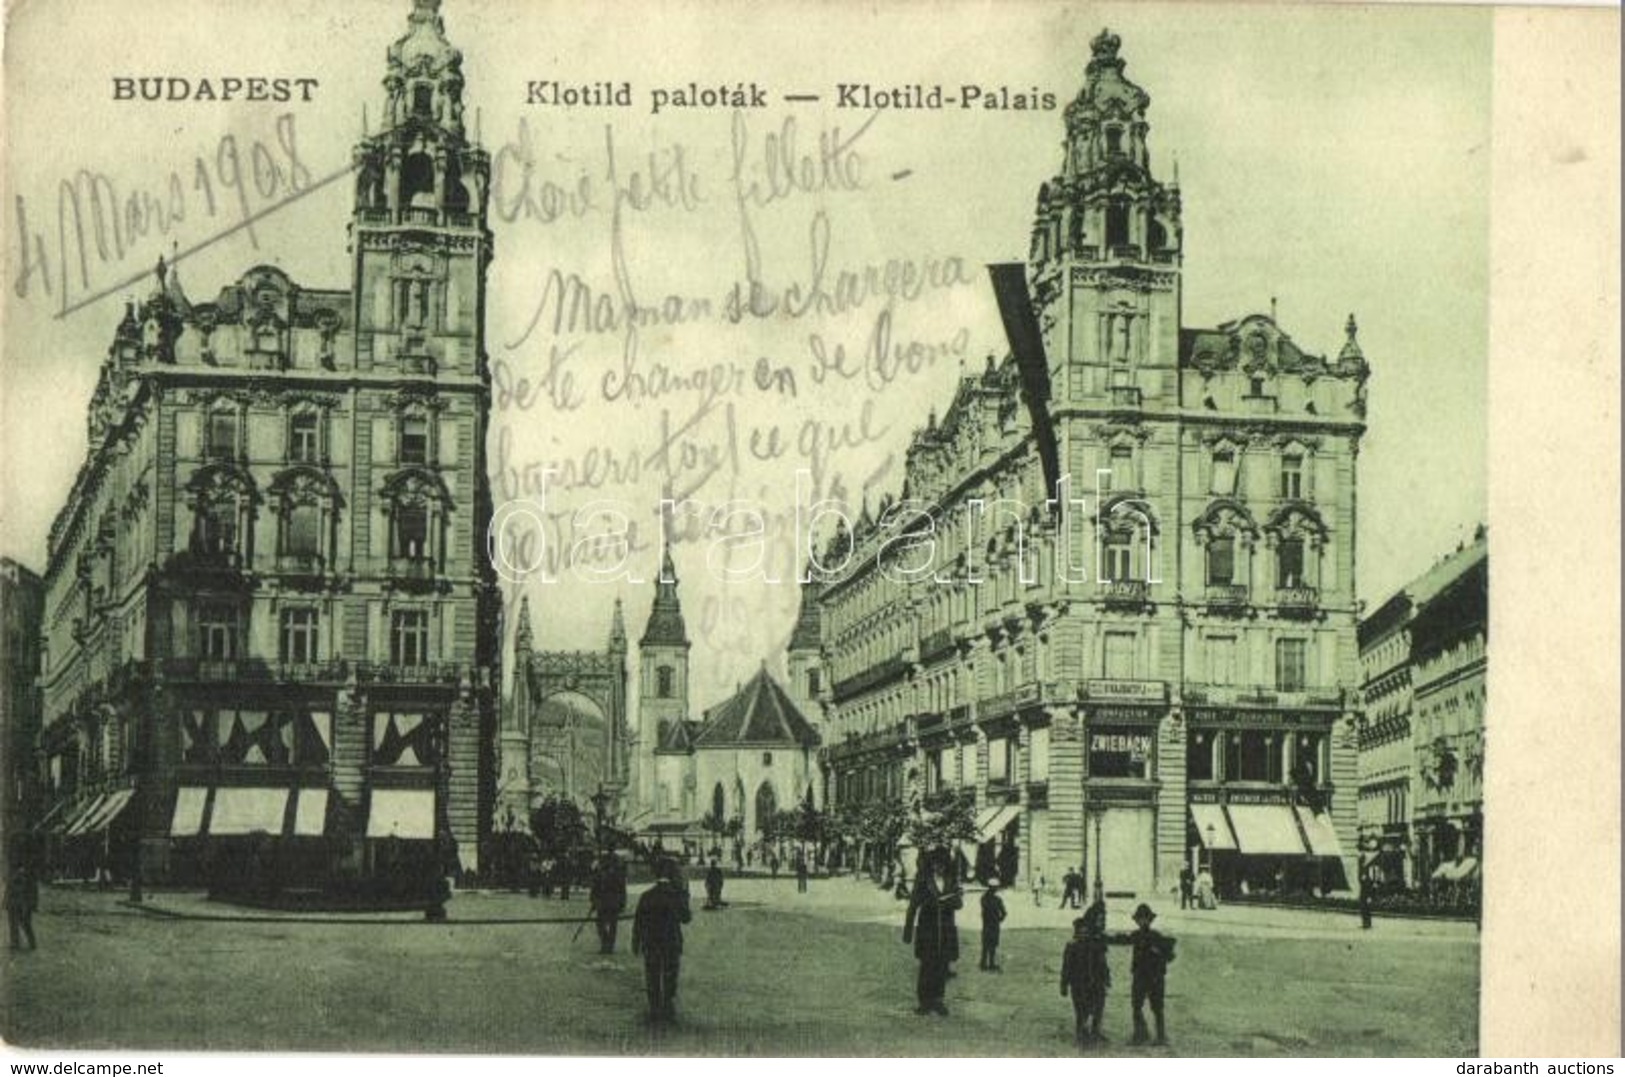 BUDAPEST
Klotild paloták — Klotild-Palais
4 Mars 1908
Chère petite fillette -
Maman se chargera
de te changer en de bons
baisers tout ce que
je désire
ZWIEBACK
darabanth
darabanth auctions